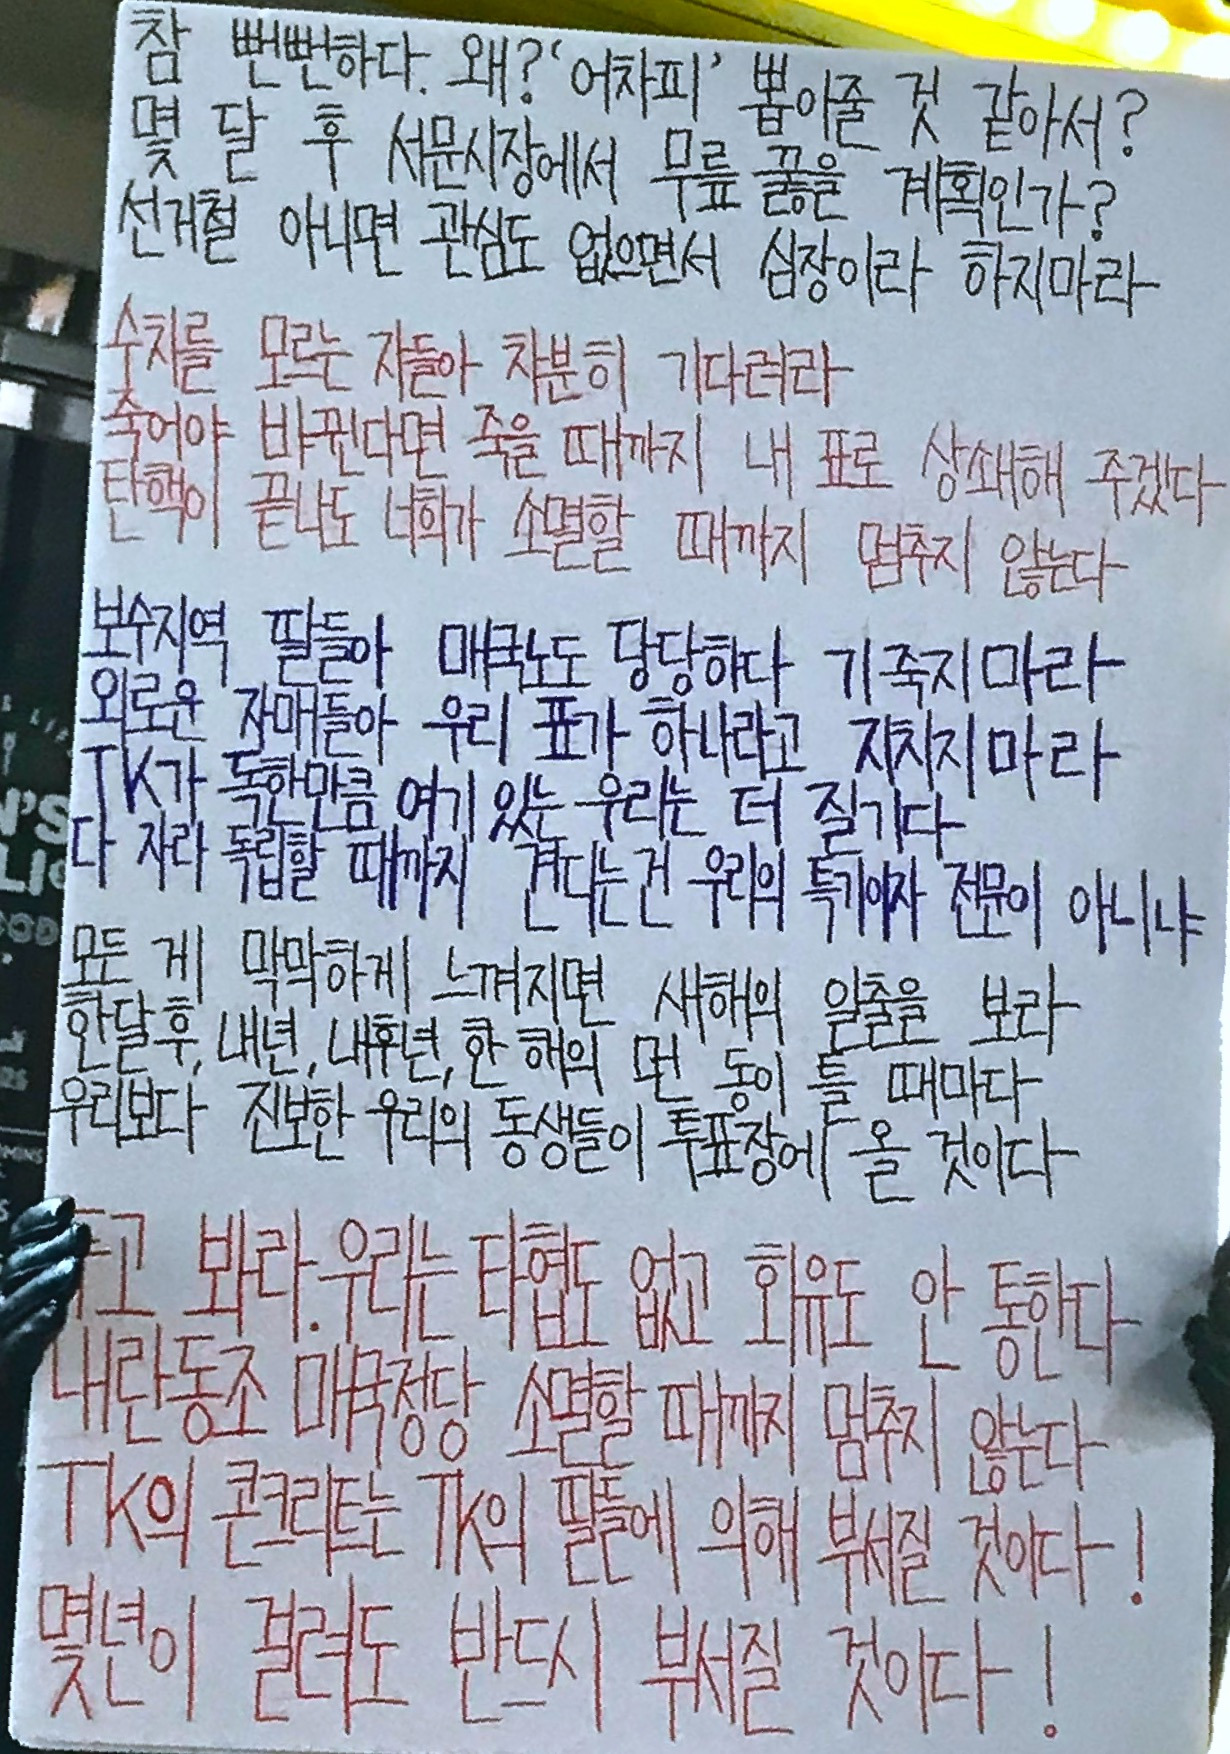 참 뻔뻔하다. 왜? '어차피' 뽑아줄 것 같아서?
몇 달 후 서문시장에서 무릎 꿇을 계획인가?
선거철 아니면 관심도 없으면서 심장이라 하지마라
수치를 모르는 자들아 차분히 기다려라
죽어야 바뀐다면 죽을 때까지 내 표로 상쇄해 주겠다
탄핵이 끝나도 너희가 소멸할 때까지 멈추지 않는다
보수지역 딸들아 매국노도 당당하다 기죽지마라
외로운 자매들아 우리 표가 하나라고 지치지마라
TK가 독한만큼 여기 있는 우리는 더 질기다
다 자라 독립할 때까지 견디는건 우리의 특기이자 전문이 아니냐
모든 게 막막하게 느껴지면 새해의 일출을 보라
한달후, 내년, 내후년, 한 해의 먼 동이 틀 때마다
우리보다 진보한 우리의 동생들이 투표장에 올 것이다
두고 봐라. 우리는 타협도 없고 회유도 안 통한다
내란동조 매국정당 소멸할 때까지 멈추지 않는다
TK의 콘크리트는 TK의 딸들에 의해 부서질 것이다!
몇년이 걸려도 반드시 부서질 것이다!